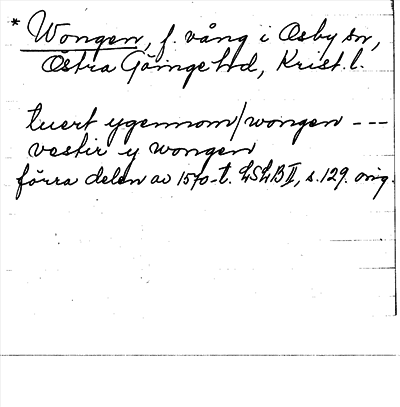 * Wongen, f. vång i Osby sn,
Östra Göinge hd, Krist. l.
tuert ygennom / wongen ---
vestir y wongen
förra delen av 1570-t. LSLB II, s. 129. orig.